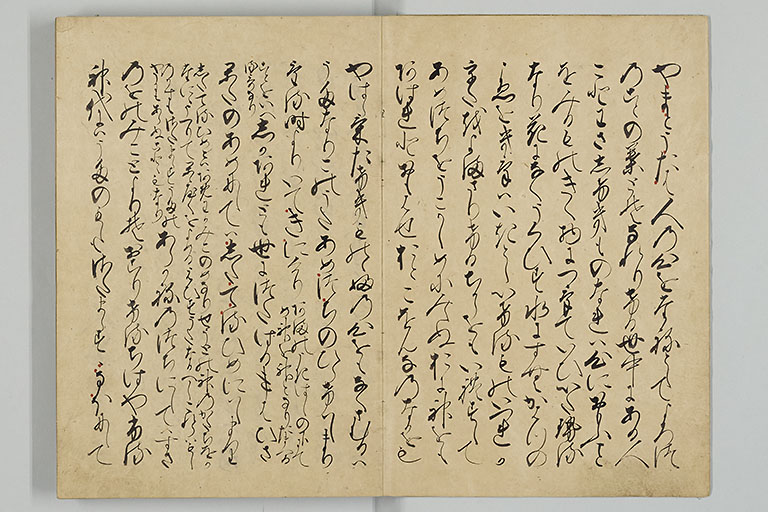 やまとうたは人の心をたねとしてよろつ
のことの葉とそなれりける世中にある人
ことわさしけきものなれは心におもふこと
をみるものきく物につけていひいたせる
なり花になくうくひす水にすむかはつの
こゑをきけはいきとしいけるものいつれか
うたをよまさりけるちからをもいれすして
あめつちをうこかしめにみえぬおに神をも
あはれとおもはせおとこをんなのなかをも
やはらけたけきものゝふの心をもなくさむるは
うたなりこのうたあめつちのひらけはしまり
ける時よりいてきにけり
あまのうきはしのしたにて
め神を神となりたまへる
ことをいへるうたなり
しかあれとも世につたはれることはひさ
かたのあめにしてはしたてるひめにはしまり
したてるひめとはあめわかみこのめなりせうとの神のかたちをか
たににうつりてかゝやくをよめるえひすうたなるへしこれらは
もしのかすもさたまらすうたの
やうにもあらぬことゝもなり
あらかねのつちにしてはすさ
のをのみことよりそおこりけるちはやふる
神代にはうたのもしもさたまらすすなほにして